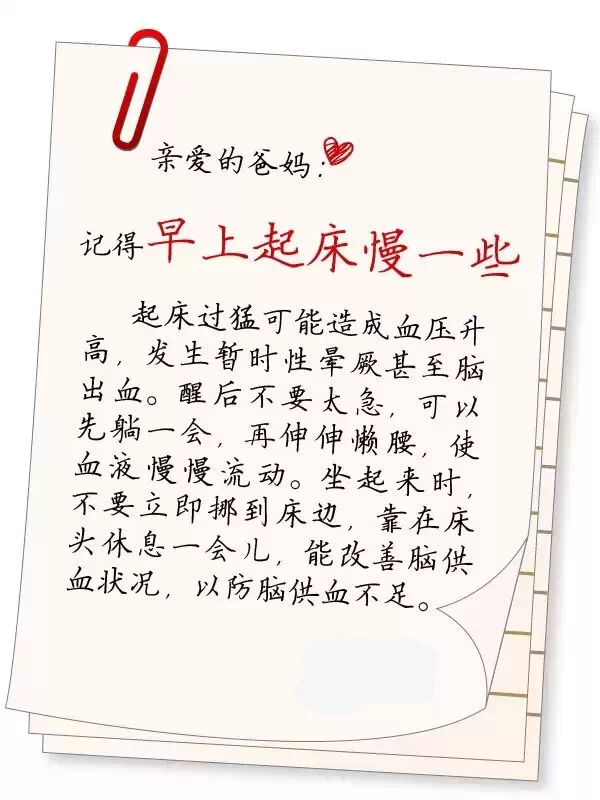 亲爱的爸妈：
记得早上起床慢一些
起床过猛可能造成血压升
高，发生暂时性晕厥甚至脑
出血。醒后不要太急，可以
先躺一会，再伸伸懒腰，使
血液慢慢流动。坐起来时，
不要立即挪到床边，靠在床
头休息一会儿，能改善脑供
血状况，以防脑供血不足。